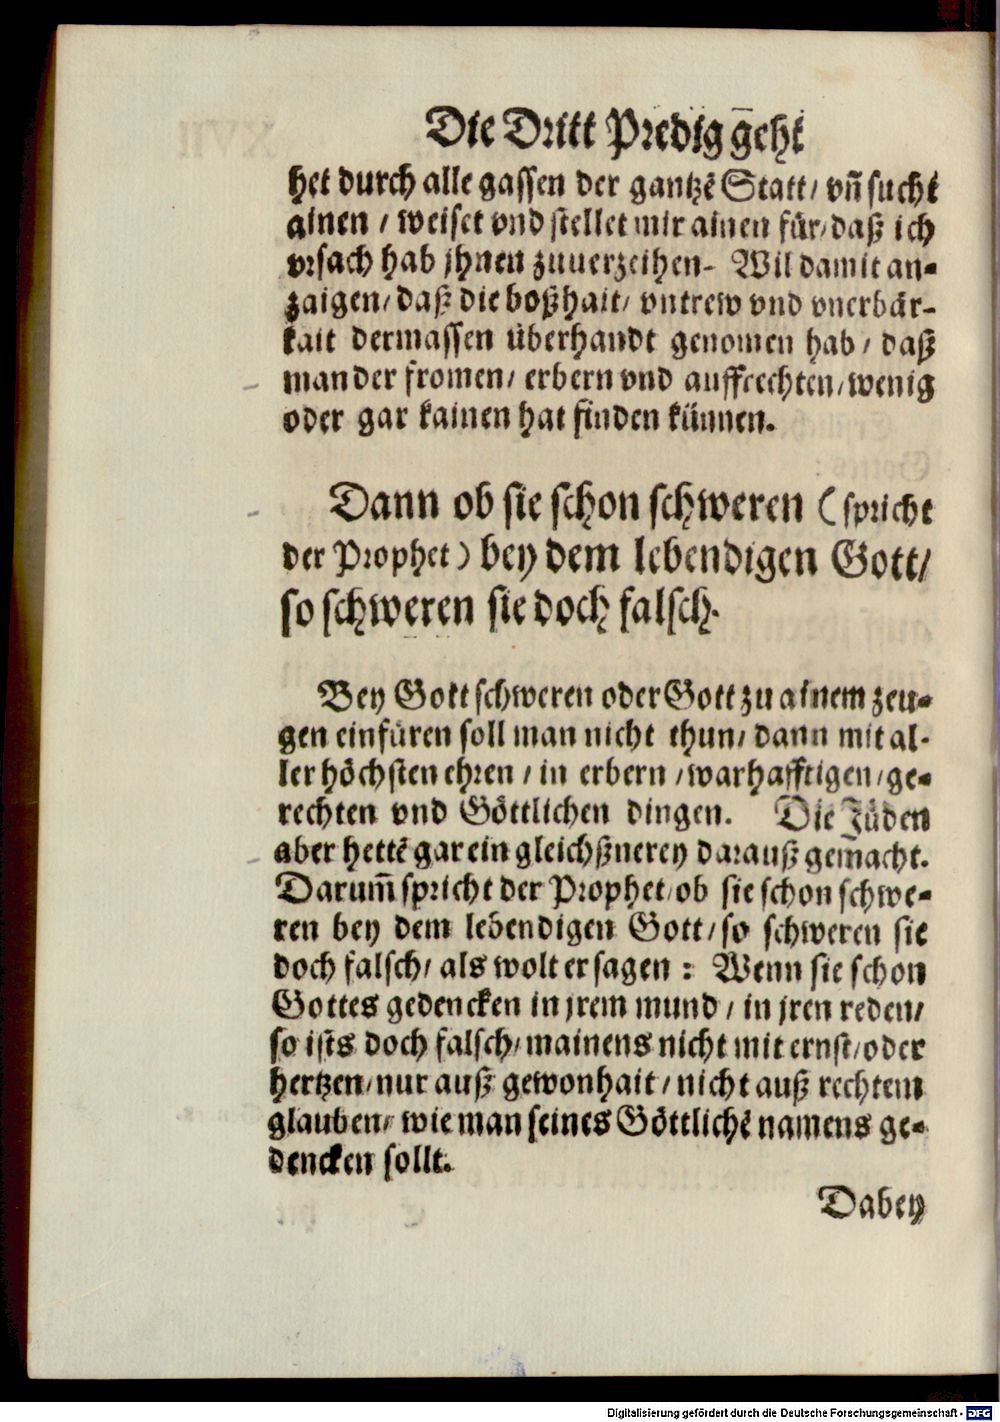 Die Dritt Predig geht
het durch alle gassen der gantzē Statt/ vn̄ sucht
ainen / weiset vnd stellet mir ainen für/ daß ich
vrsach hab jhnen zuuerzeihen. Wil damit an-
zaigen/ daß die boßhait/ vntrew vnd vnerbär-
kait dermassen überhandt genomen hab / daß
man der fromen/ erbern vnd auffrechten/ wenig
oder gar kainen hat finden künnen.
Dann ob sie schon schweren (spricht
der Prophet) bey dem lebendigen Gott/
so schweren sie doch falsch.
Bey Gott schweren oder Gott zu ainem zeu-
gen einfüren soll man nicht thun/ dann mit al-
ler höchsten ehren / in erbern / warhafftigen/ ge-
rechten vnd Göttlichen dingen. Die Jüden
aber hettē gar ein gleichßnerey darauß gemacht.
Darum̄ spricht der Prophet/ ob sie schon schwe-
ren bey dem lebendigen Gott/ so schweren sie
doch falsch/ als wolt er sagen : Wenn sie schon
Gottes gedencken in jrem mund / in jren reden/
so ists doch falsch/ mainens nicht mit ernst/ oder
hertzen/ nur auß gewonhait / nicht auß rechtem
glauben/ wie man seines Göttlichē namens ge-
dencken sollt.
Dabey
Digitalisierung gefördert durch die Deutsche Forschungsgemeinschaft - DFG